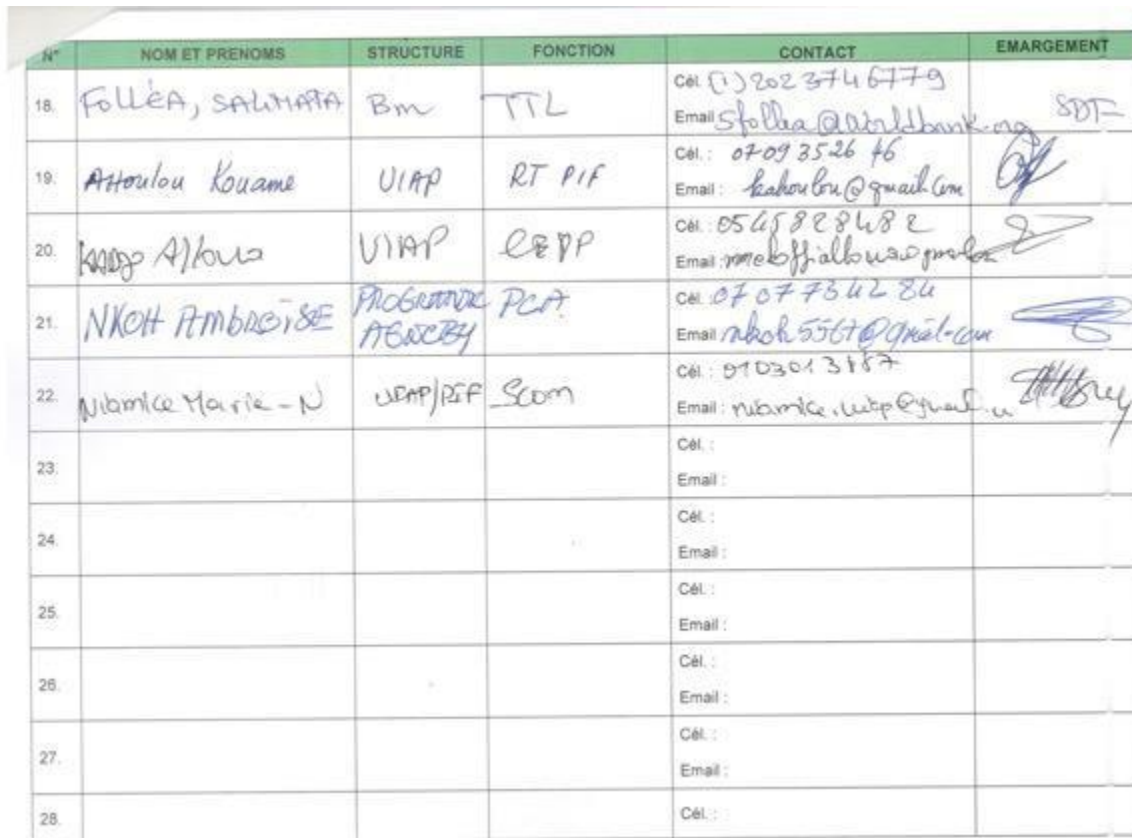 N° NOM ET PRENOMS STRUCTURE FONCTION CONTACT EMARGEMENT
18. FOLLÉA, SALIMATA Bm TTL Cél. (1) 202 374 6779 SDF
Email sfollea@worldbank.org
19. AHoulou Kouame UIAP RT PIF Cél. : 07 09 35 26 46
Email: kahoulou@gmail.com
20. Affoua UIAP Cél. : 0545828482
Email :
21. NKOH AMBROISE PROGRAMME PCA Cél. : 07 07 73 42 84
AGNEBY Email : nkoh5567@gmail.com
22. Niamice Marie-N UIAP/PIF Scom Cél. :
Email : niamice.uiap@gmail.
23. Cél. :
Email :
24. Cél. :
Email :
25. Cél. :
Email :
26. Cél. :
Email :
27. Cél. :
Email :
28. Cél. :